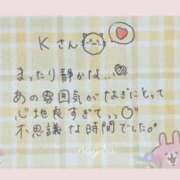 Kさん
まったり静かな…
あの雰囲気がなぎにとって
心地良すぎて っ
不思議な時間でした。